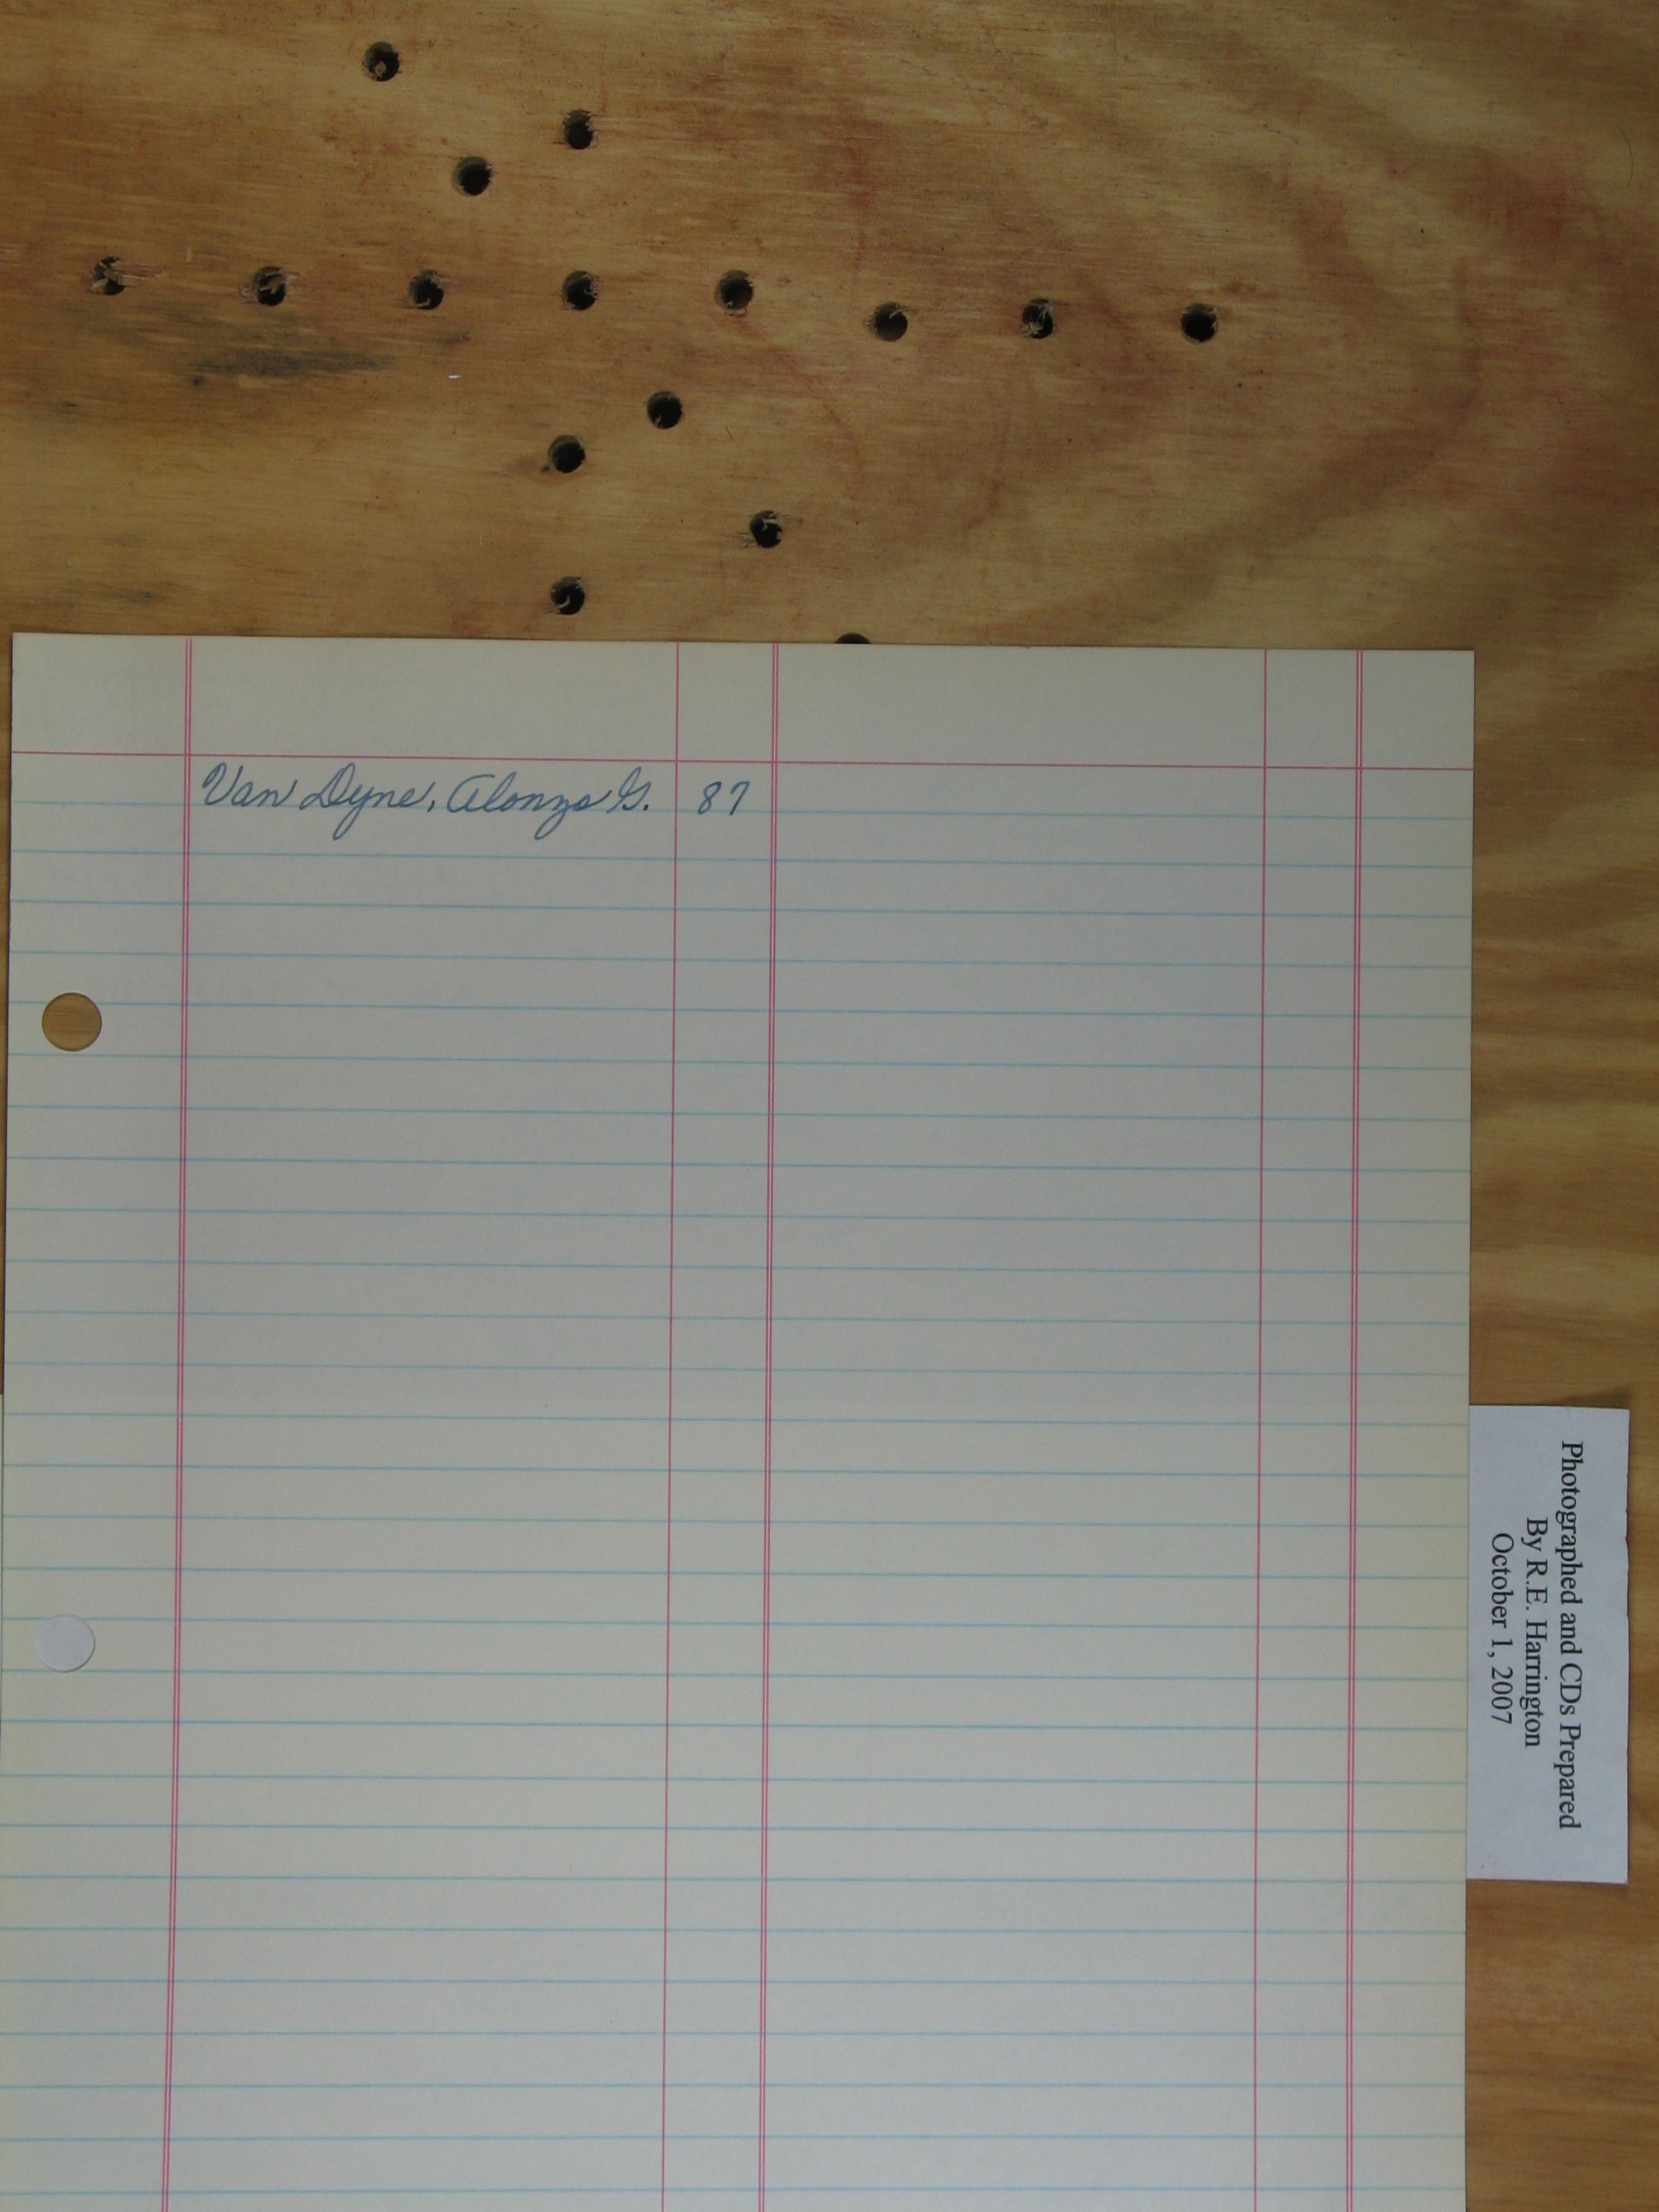 Van Dyne, Alonzo G. 87
Photographed and CDs Prepared
By R.E. Harrington
October 1, 2007